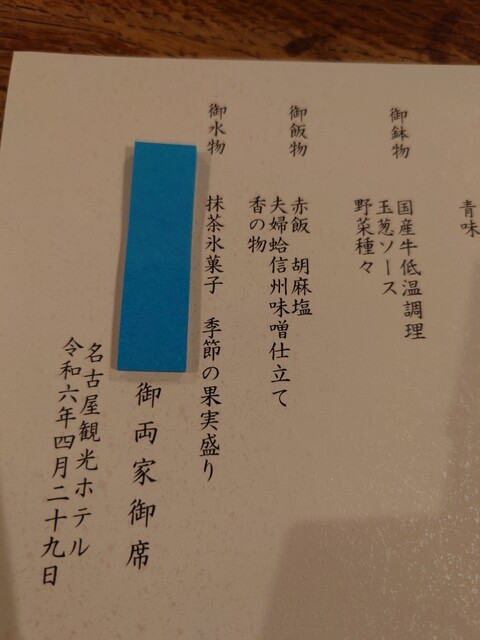 青味
御鉢物
国産牛低温調理
玉葱ソース
野菜種々
御飯物
赤飯 胡麻塩
夫婦蛤信州味噌仕立て
香の物
御水物
抹茶氷菓子 季節の果実盛り
御両家御席
名古屋観光ホテル
令和六年四月二十九日